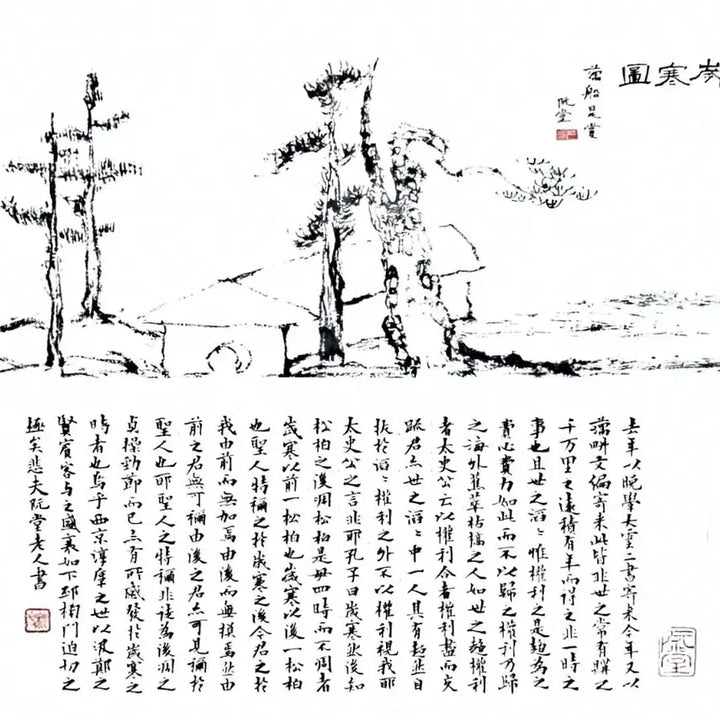 歲寒圖
藕船是賞
阮堂
去年以晚學大雲二書寄來今年又以
藕畊文編寄來此皆非世之常有購之
千万里之遠積有年而得之非一時之
事也且世之滔〻惟權利之是趨爲之
費心費力如此而不以歸之權利乃歸
之海外蕉萃枯槁之人如世之趨權利
者太史公云以權利合者權利盡而交
踈君亦世之滔〻中一人其有超然自
拔於滔〻權利之外不以權利視我耶
太史公之言非耶孔子曰歲寒然後知
松柏之後凋松柏是毌四時而不凋者
歲寒以前一松柏也歲寒以後一松柏
也聖人特稱之於歲寒之後今君之於
我由前而無加焉由後而無損焉然由
前之君無可稱由後之君亦可見稱於
聖人也耶聖人之特稱非徒爲後凋之
貞操勁節而已亦有所感發於歲寒之
時者也烏乎西京淳厚之世以汲鄭之
賢賓客與之盛衰如下邳榜門迫切之
極矣悲夫阮堂老人書
阮堂